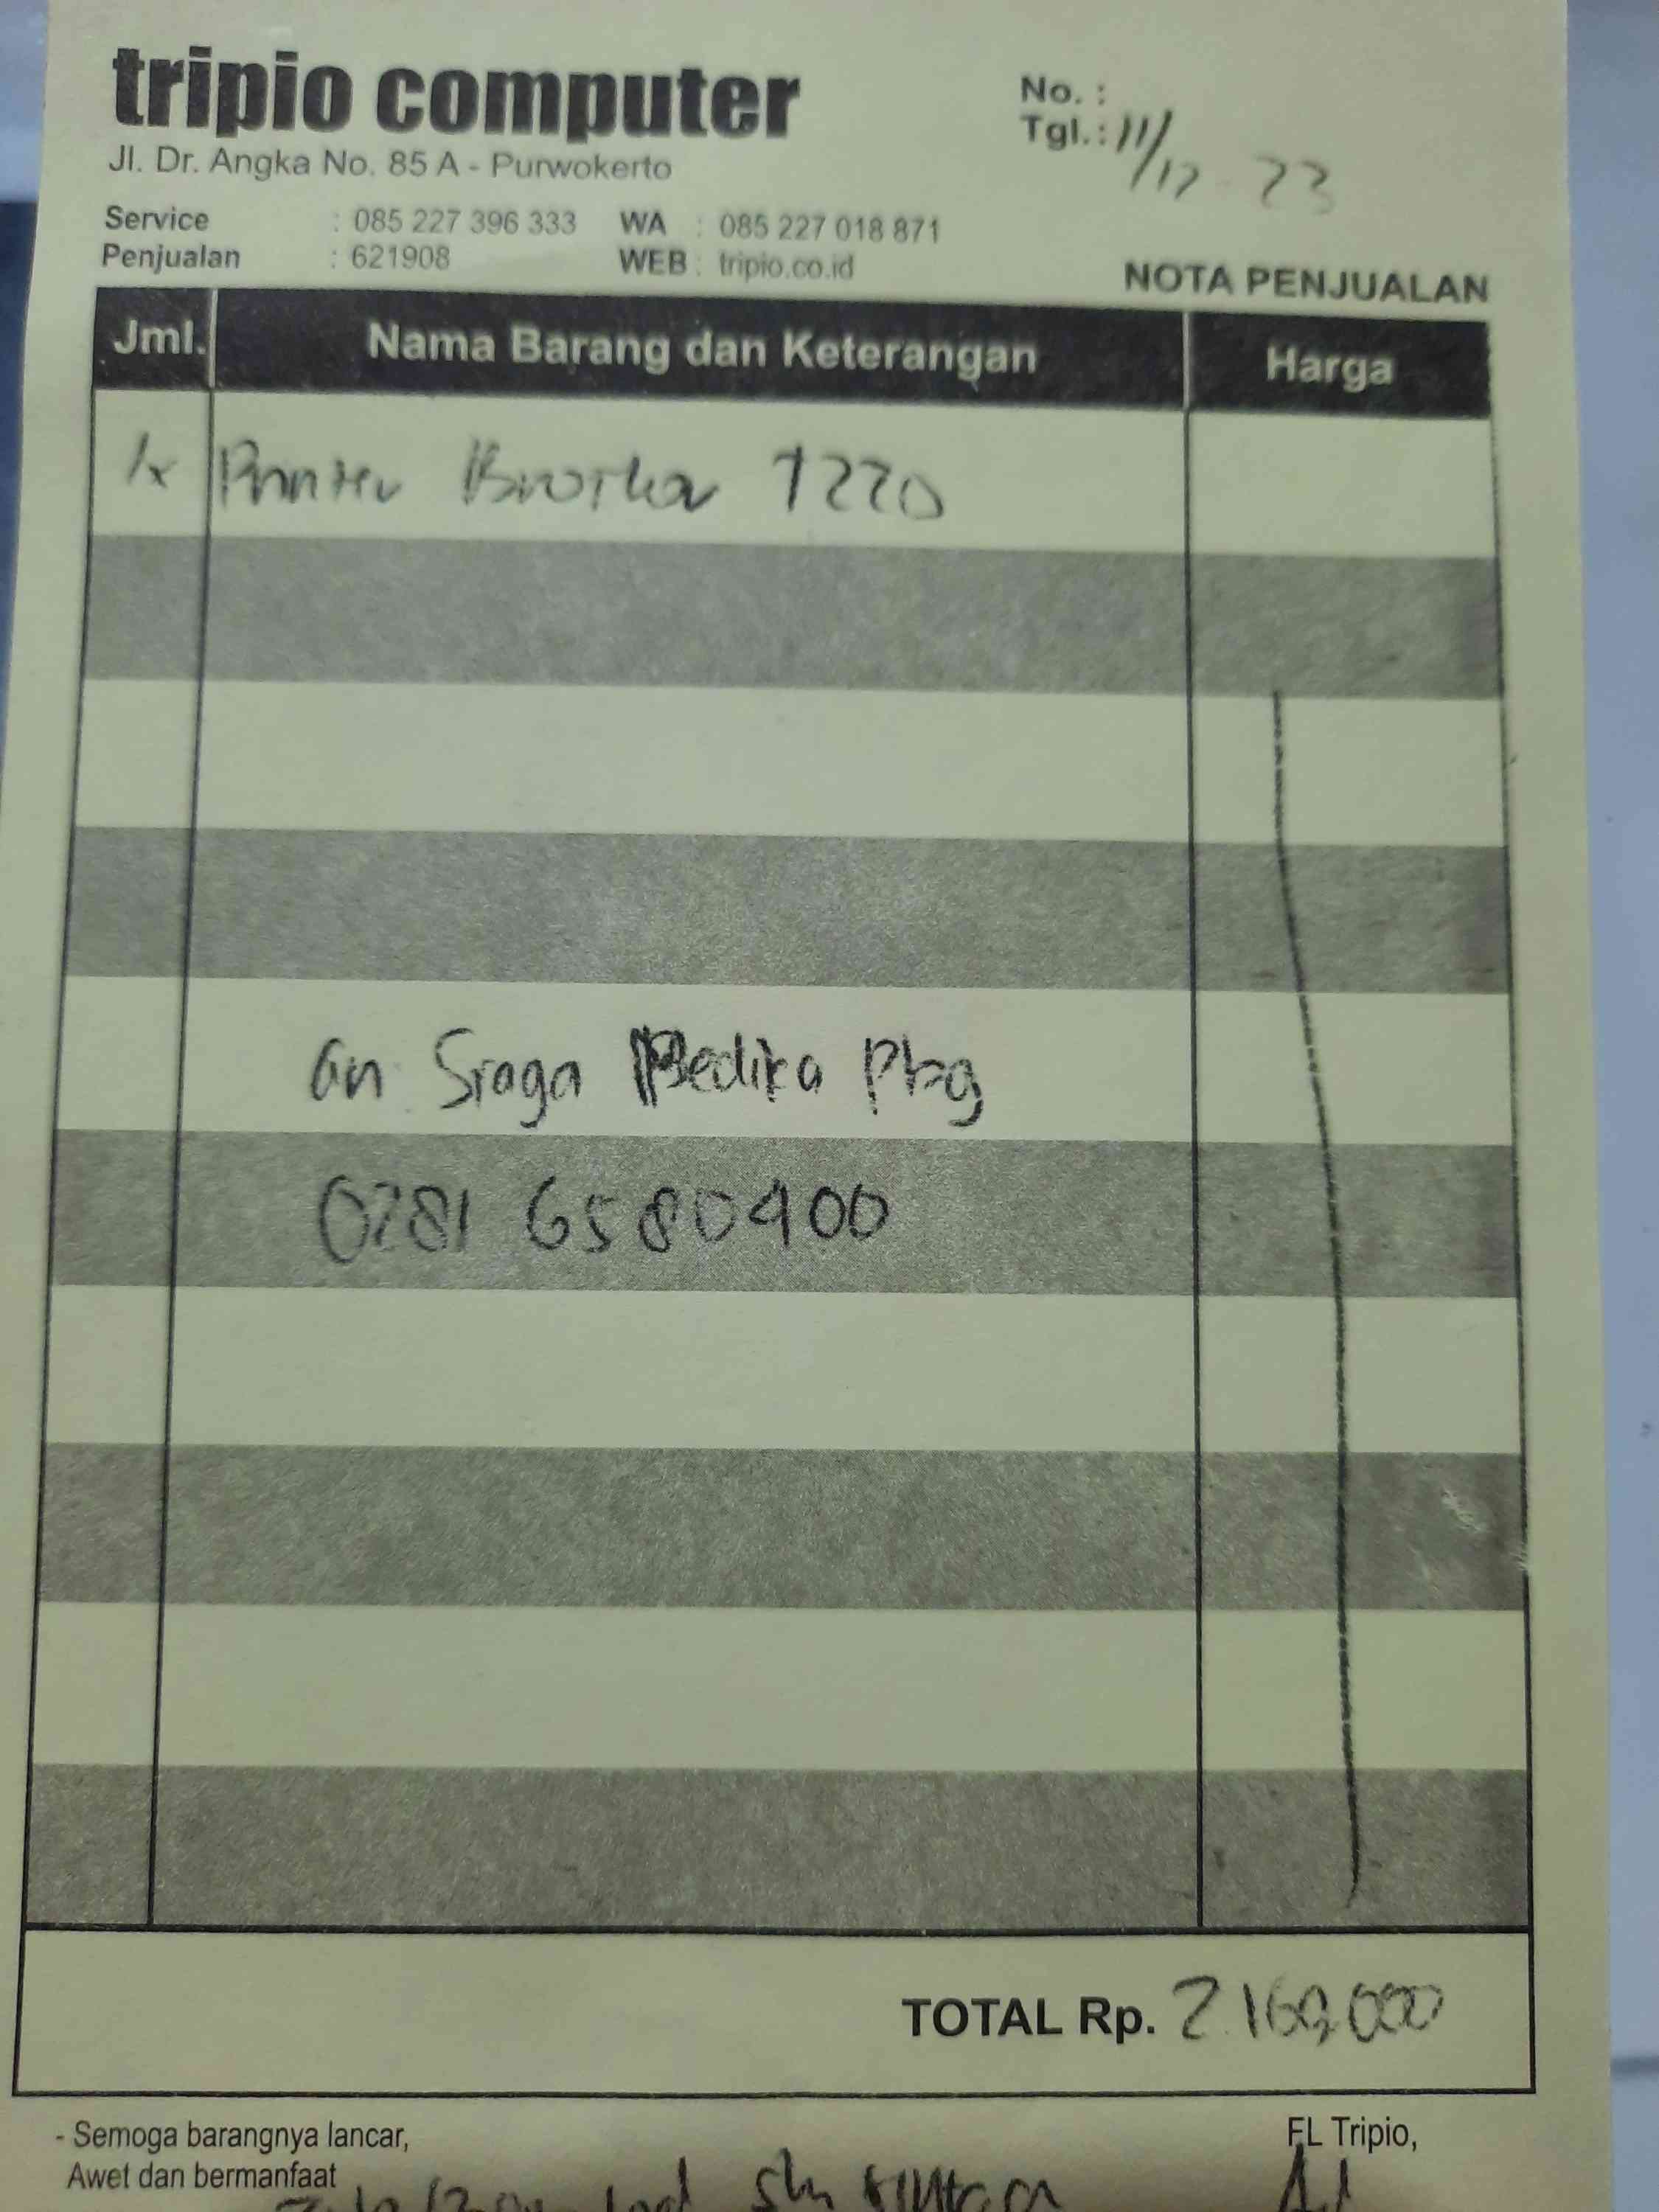 tripio computer
Jl. Dr. Angka No. 85 A - Purwokerto
No. :
Tgl. : 11/12 23
Service : 085 227 396 333 WA : 085 227 018 871
Penjualan : 621908 WEB : tripio.co.id
NOTA PENJUALAN
Jml. Nama Barang dan Keterangan Harga
1x Printer Brother T220
an Siaga Medika Pbg
0281 6580400
TOTAL Rp. 2.160,000
- Semoga barangnya lancar,
Awet dan bermanfaat
FL Tripio,